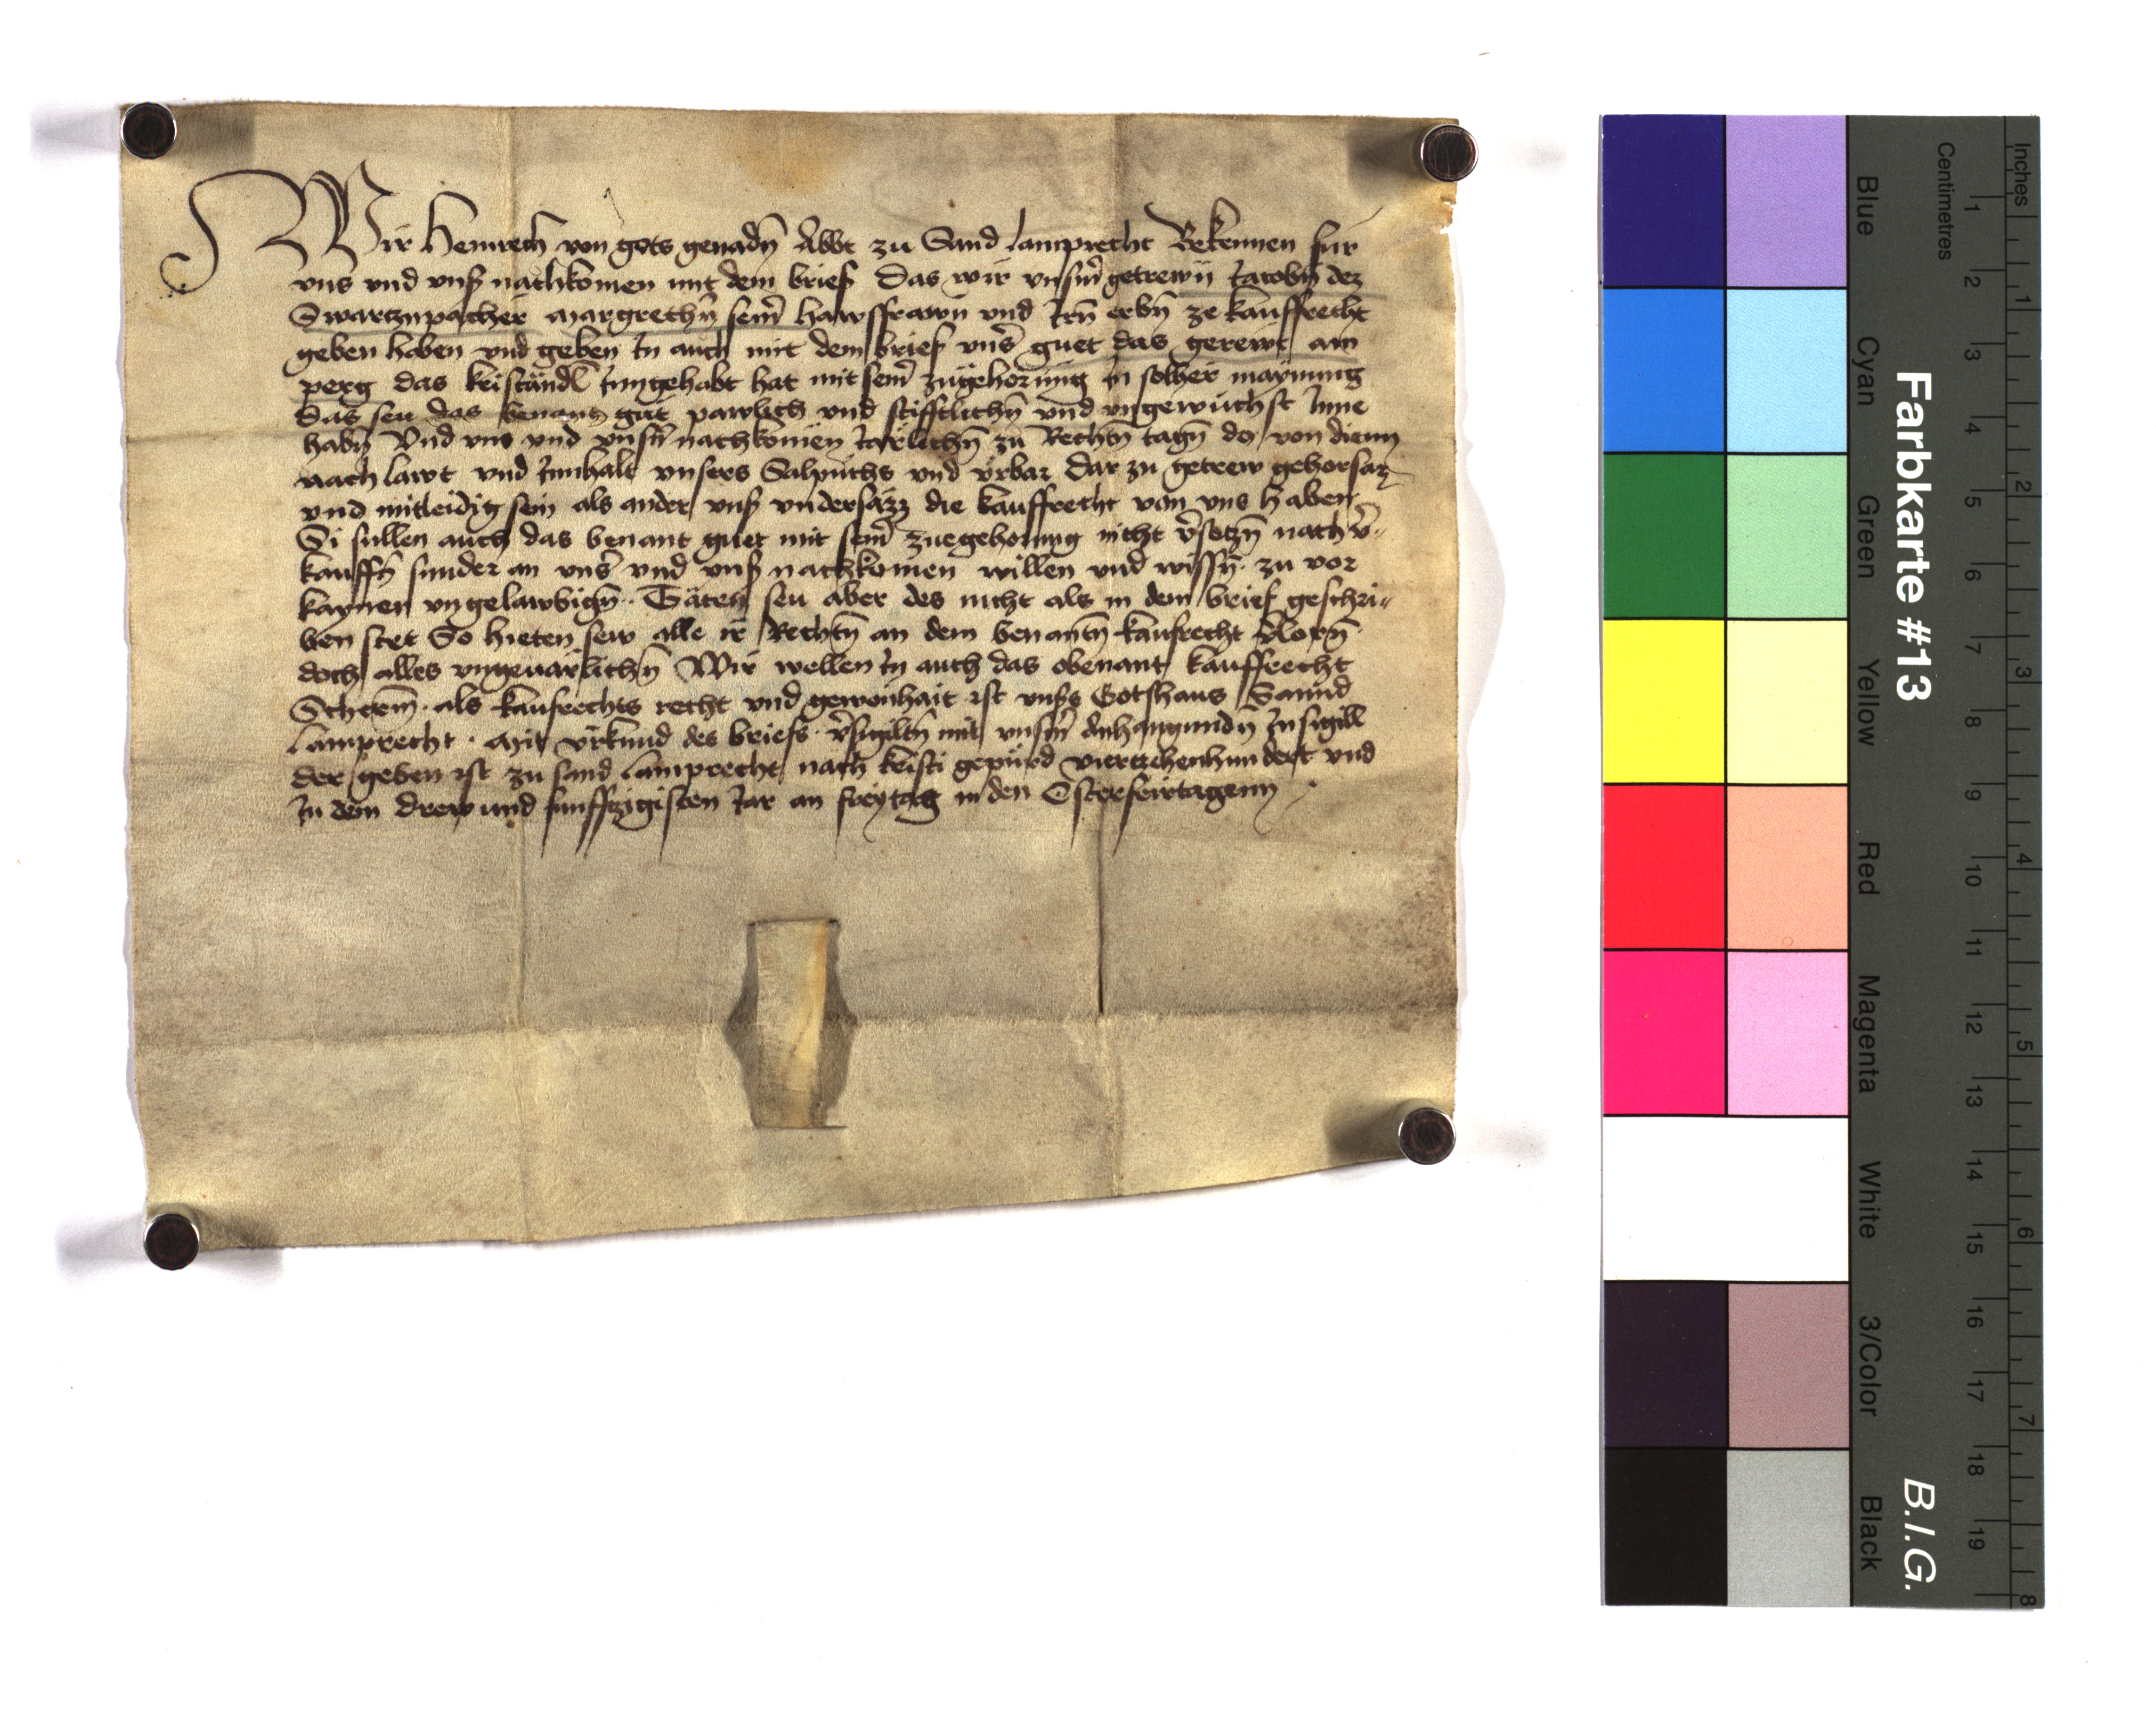 Wir Heinreich von gots genadn̄ Abbt zu Sand lamprecht Bekennen fur
vns vnd vnsß nachkomen mit dem brief Das wir vnsm̄ getrewn̄ Jacobn̄ dez
Swartznpacher Margrethn̄ seīr hawsfrawn vnd Irn̄ erbn̄ ze kauffrecht
geben haben vnd geben In auch mit dem brief vnṡ guet das gerewt am
perg das kristāndl Inngehabt hat mit seīr zugehorung in solher maynung
das seu das benant gut pawlich vnd stifftlichn̄ vnd vngewuchst Inne
habn̄ Vnd vns vnd vnsn̄ nachkomen Jarlichn̄ zu Rechtn̄ tagn̄ do von dienn
nach lawt vnd Innhalt vnsers Salpuchs vnd vrbar dar zu getrew gehorsam
vnd mitleidig sein als ander vnsß vndersāzz die kauffrecht von vns haben
Si sullen auch das benant guet mit seīr zuegehorung nicht v̄setzn̄ nach v̄-
kauffn̄ sunder an vnṡ vnd vnsß nachkomen willen vnd wissn̄ zu vor
kaynen vngelawbign̄ Tāten seu aber des nicht als in dem brief geschri-
ben stet So hieten sew alle ir Rechtn̄ an dem benantn̄ kaufrecht v̄lorn̄
doch alles vngeuarlichn̄ Wir wellen In auch das obenant kauffrecht
Scherm̄ als kaufrechts recht vnd gewonhait ist vnsßs Gotshaus Sannd
lamprecht . Mit vrkund des briefs v̄sigiltn̄ mit vnsm̄ Anhangundn̄ Insigill
der geben ist zu sand lamprecht nach kristi gepurd vierczehenhundert vnd
In dem drew und funffczigisten Jar an freytag in den Osterfeirtagenn
Farbkarte #13
B.I.G.
Centimetres
Inches
Blue
Cyan
Green
Yellow
Red
Magenta
White
3/Color
Black
1 2 3 4 5 6 7 8 9 10 11 12 13 14 15 16 17 18 19
1 2 3 4 5 6 7 8